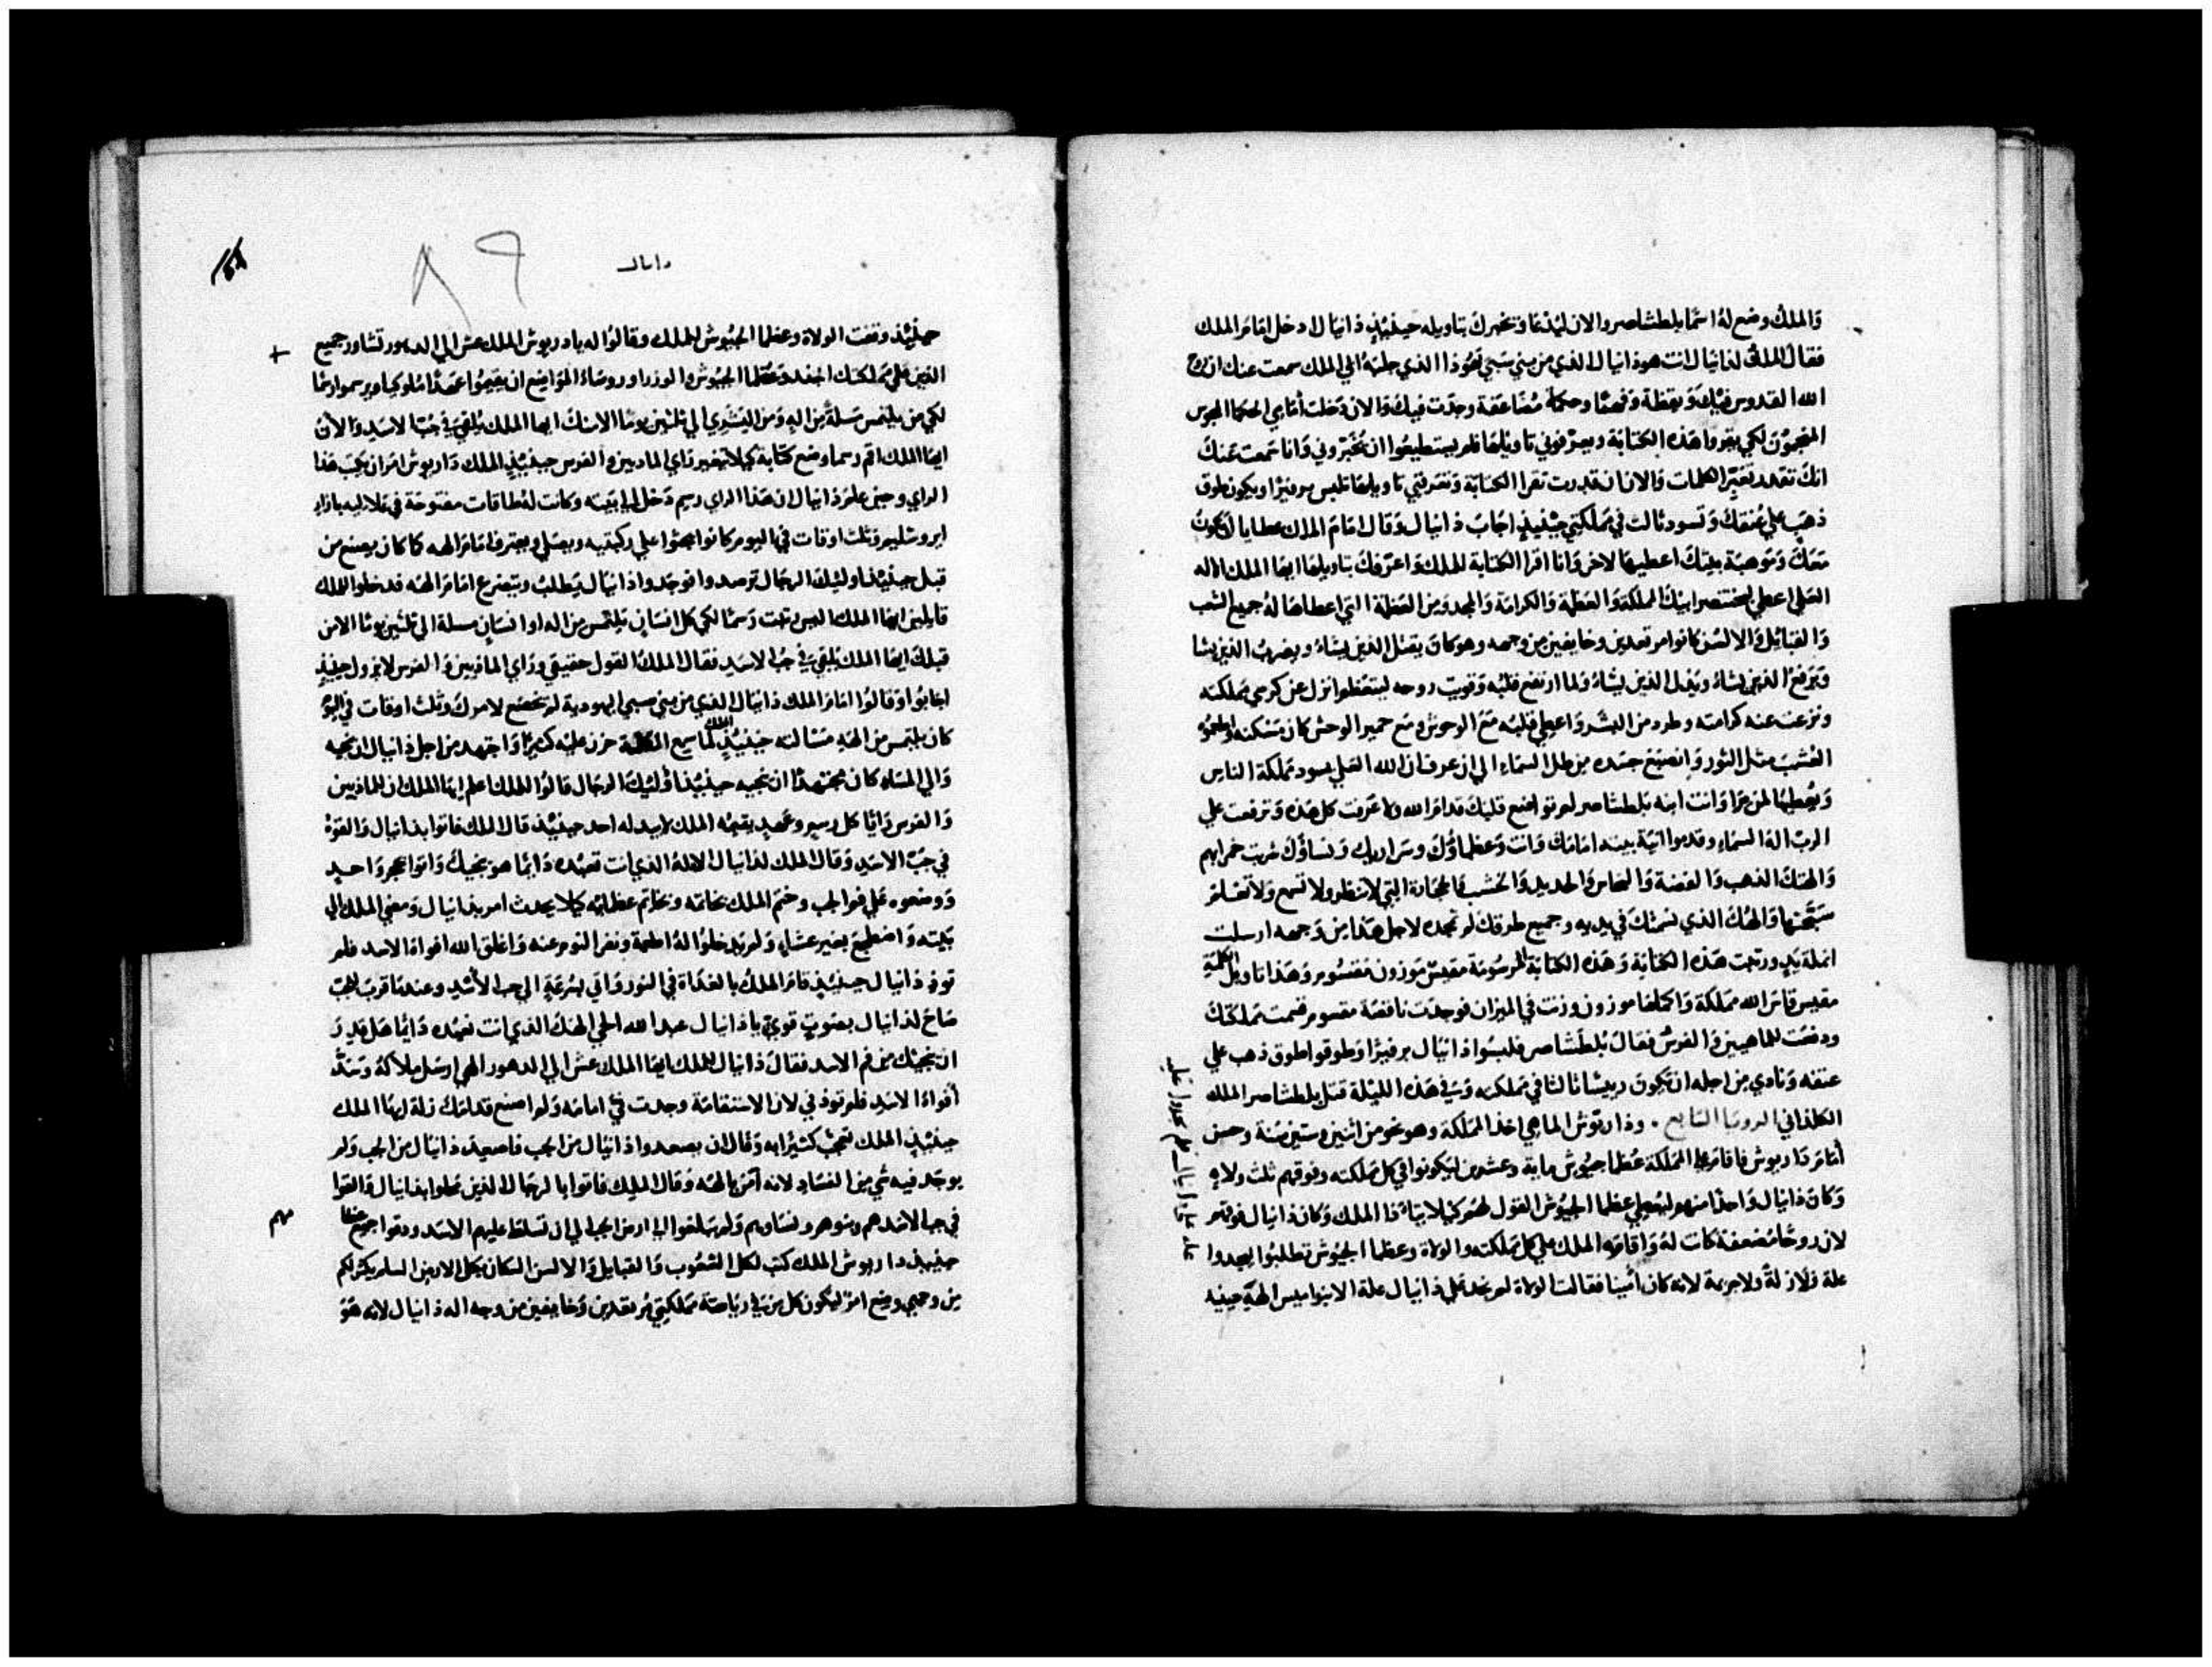 والملك وضع له اسما بلطشاصر والان ليدعا وتخبرك بتاويله حينيذٍ دانيال دخل امام الملك
فقال الملك لدانيال انت هو دانيال الذي من بني سبي يهوذا الذي جلبه ابي الملك سمعت عنك ان روح
الله القدوس فيك ويقظة وفهما وحكمة مضاعفة وجدت فيك والان دخلت امامي الحكما المجوس
المنجمون لكي يقروا هذه الكتابة ويعرفوني تاويلها فلم يستطيعوا ان يخبروني وانا سمعت عنك
انك تقدر تفسر الكلمات والان ان قدرت تقرا الكتابة وتعرفني تاويلها تلبس برفيرا ويكون طوق
ذهب علي عنقك وتسود ثالث في مملكتي حينيذٍ اجاب دانيال وقال امام الملك عطاياك لتكون
معك وموهبة بيتك اعطيها لاخر وانا اقرا الكتابة للملك واعرفك بتاويلها ايها الملك الاله
العلي اعطي لبختنصر ابيك المملكة والعظمة والكرامة والمجد ومن العظمة التي اعطاها له جميع الشعب
والقبايل والالسن كانوا مرتعدين وخايفين من وجهه وهو كان يقتل الذين يشاء ويضرب الذين يشا
ويرفع الذين يشاء ويذل الذين يشاء ولما ارتفع قلبه وقويت روحه ليتعظم انزل عن كرسي مملكته
ونزعت عنه كرامته وطرد من البشر واعطي قلبه مع الوحوش ومع حمير الوحش كان مسكنه واطعموه
العشب مثل الثور وانصبغ جسده من طل السماء الي ان عرف ان الله العلي يسود مملكة الناس
ويعطيها لمن يرا وانت ابنه بلطشاصر لم تواضع قلبك قدام الله ولا عرفت كل هذه وترفعت علي
الرب اله السماء وقدموا انية بيته امامك وانت وعظماوك وسراريك ونساوك شربت خمرا بهم
والهتك الذهب والفضة والنحاس والحديد والخشب والحجارة التي لا تنظر ولا تسمع ولا تعلم
سبحتها والهك الذي نسمتك في يديه وجميع طرقك لم تمجده لاجل هذا من وجهه ارسلت
انملة يدٍ ورتبت هذه الكتابة وهذه الكتابة المرسومة مقيس موزون مقسوم وهذا تاويل الكلمة
مقيس قاس الله مملكة واكملها موزون وزنت في الميزان فوجدت ناقصة مقسوم قسمت مملكتك
ودفعت للماهيين والفرس فقال بلطشاصر فلبسوا دانيال برفيرا وطوقوا طوق ذهب علي
عنقه ونادي من اجله ان يكون رييسا ثالثا في مملكته وفي هذه الليلة قتل بلطشاصر الملك
الكلداني الرويا السابع . وداريوش الماهي اخذ المملكة وهو نحو من اثنين وستين سنة وحسن
امام داريوش فاقام علي المملكة عظما جيوش ماية وعشرين ليكونوا في كل مملكته وفوقهم ثلث ولاه
وكان دانيال واحدا منهم ليعطي عظما الجيوش القول لهم كيلا يتاذا الملك وكان دانيال فوقهم
لان روحا مضعفة كانت له واقامه الملك علي كل مملكته والولاة وعظما الجيوش تطلبوا ليجدوا
علة ولا زلة ولا جريمة لانه كان امينا فقالت الولاة لم نجد علي دانيال علة الا بنواميس الهه حينيذ
دانيال
حينيذ وقفت الولاة وعظما الجيوش للملك وقالوا له يا داريوش الملك عش الي الدهور تشاور جميع
الذين علي مملكتك الجند وعظما الجيوش والوزرا وروساء المواضع ان يقيموا عهدا ملوكيا ويرسموا رسما
لكي من يلتمس مسلة من اله ومن البشري الي ثلثين يوما الا منك ايها الملك يلقي في جب الاسد والان
ايها الملك اقم رسما وضع كتابة كيلا يتغير راي المادبين والفرس حينيذٍ الملك داريوش امر ان يكتب هذا
الراي وحين علم دانيال ان هذا الراي رسم دخل الي بيته وكانت له طاقات مفتوحة في علاليه بازاء
ايروسليم وثلث اوقات في اليوم كانوا يجثوا علي ركبتيه ويصلي ويعترف امام الهه كما كان يصنع من
قبل حينيذ اوليك الرجال ترصدوا فوجدوا دانيال يطلب ويتضرع امام الهه فدخلوا للملك
قايلين ايها الملك اليس رتبت رسما لكي كل انسان يلتمس من اله او انسان مسلة الي ثلثين يوما الا من
قبلك ايها الملك يلقي في جب الاسد فقال الملك القول حقيقي وراي المادبين والفرس لا يزول حينيذٍ
اجابوا وقالوا امام الملك دانيال الذي من بني سبي اليهودية لم يخضع لامرك وثلث اوقات في اليوم
كان يلتمس من الهه مسالته حينيذٍ الملك لما سمع الكلمة حزن عليه كثيرا واجتهد من اجل دانيال ان ينجيه
والي المساء كان مجتهدا ان ينجيه حينيذ اوليك الرجال قالوا للملك اعلم ايها الملك ان للمادبين
والفرس رايا كل رسم وعهد يقيمه الملك لا يبدله احد حينيذ قال الملك فاتوا بدانيال والقوه
في جب الاسد وقال الملك لدانيال الاله الذي انت تعبده دايما هو ينجيك واتوا بحجر واحد
ووضعوه علي فم الجب وختم الملك بخاتمه وخاتم عظمايه كيلا يحدث امر بدانيال ومضي الملك الي
بيته واضطجع بغير عشاء ولم يدخلوا له اطعمة ونفر النوم عنه واغلق الله افواه الاسد فلم
توذ دانيال حينيذٍ قام الملك بالغداة في النور واتي بسرعة الي جب الاسد وعندما قرب للجب
صاح لدانيال بصوت قوي يا دانيال عبد الله الحي الهك الذي انت تعبده دايما هل قدر
ان ينجيك من فم الاسد فقال دانيال للملك ايها الملك عش الي الدهور الهي ارسل ملاكه وسد
افواه الاسد فلم توذني لان الاستقامة وجدت في امامه ولم اصنع قدامك زلة ايها الملك
حينيذٍ الملك تعجب كثيرا به وقال ان يصعدوا دانيال من الجب فاصعد دانيال من الجب ولم
يوجد فيه شي من الفساد لانه امن بالهه وقال الملك فاتوا بالرجال الذين محلوا بدانيال والقوا
في جب الاسد هم وبنوهم ونساوهم ولم يبلغوا الي ارض الجب الي ان تسلط عليهم الاسد ودقوا جميع عظامهم
حينيذ داريوش الملك كتب لكل الشعوب والقبايل والالسن السكان بكل الارض السلم يكثر لكم
من وجهي وضع امر ليكون كل من في رياسة مملكتي مرتعدين وخايفين من وجه اله دانيال لانه هو
مهم